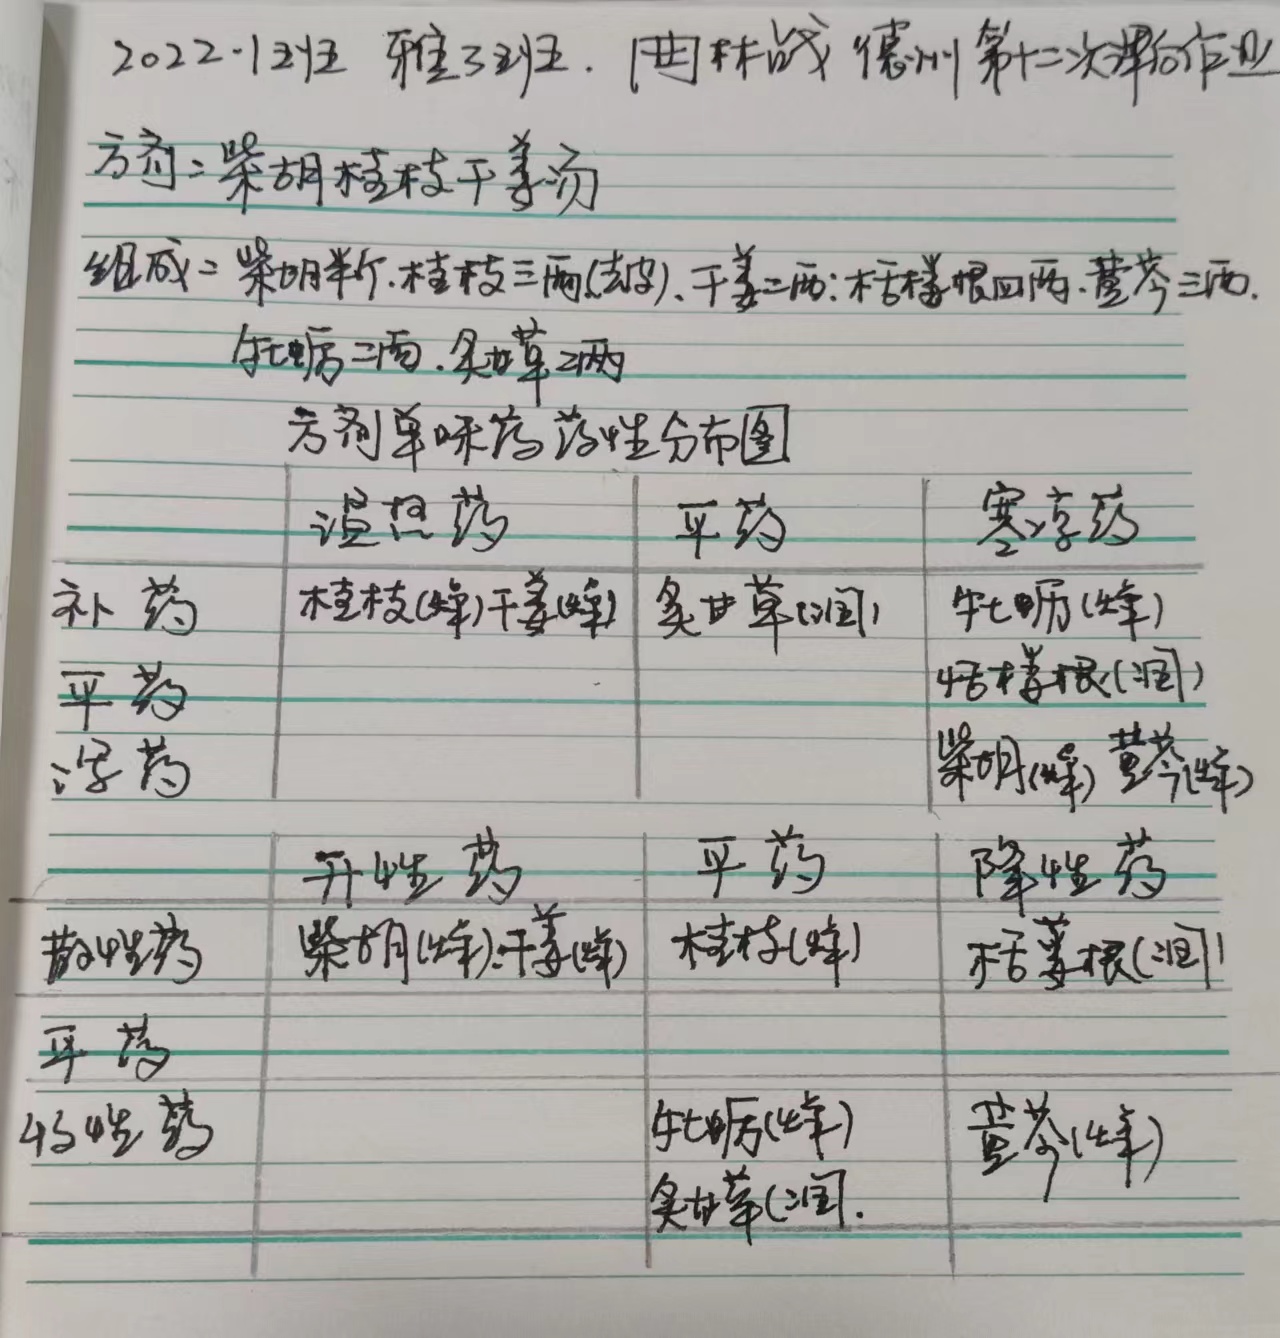 2022·1班 雅3班. 林战 德州 第十二次课后作业
方剂：柴胡桂枝干姜汤
组成：柴胡半斤.桂枝三两(去皮)、干姜二两：栝楼根四两.黄芩三两.
牡蛎二两.炙甘草2两
方剂单味药药性分布图
温热药 平药 寒凉药
补药 桂枝(燥)干姜(燥) 炙甘草(润) 牡蛎(燥)
平药 栝楼根(润)
泻药 柴胡(燥) 黄芩(燥)
升性药 平药 降性药
散性药 柴胡(燥).干姜(燥) 桂枝(燥) 栝蒌根(润)
平药
收性药 牡蛎(燥) 黄芩(燥)
炙甘草(润.